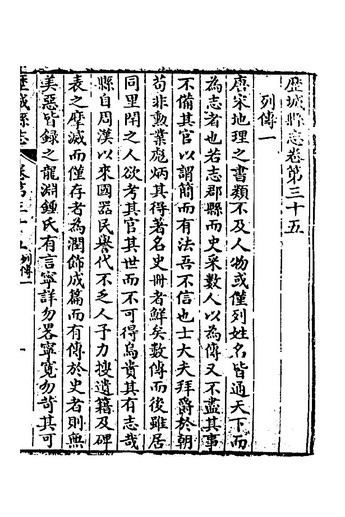 歷城縣志卷第三十五
列傳一
唐宋地理之書類不及人物或僅列姓名皆通天下而
為志者也若志郡縣而史采數人以為傳又不盡其事
不備其官以謂簡而有法吾不信也士大夫拜爵於朝
苟非勲業彪炳其得著名史冊者鮮矣數傳而後雖居
同里閈之人欲考其官其世而不可得烏貴其有志哉
縣自周漢以來國器民譽代不乏人予力搜遺籍及碑
表之磨滅而僅存者為潤飾成篇而有傳於史者則無
美惡皆錄之龍淵鍾氏有言寧詳勿畧寧寛勿苛其可
歷城縣志
卷第三十五列傳一
一